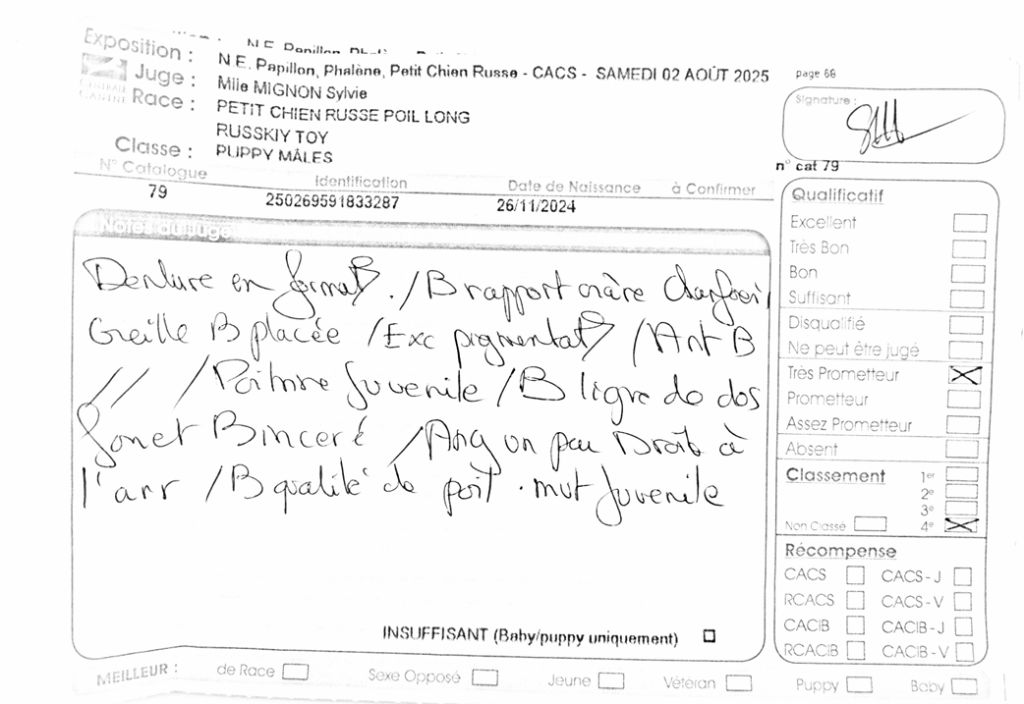 Exposition : N.E. Papillon, Phalène, Petit Chien Russe - CACS - SAMEDI 02 AOÛT 2025 page 68
Juge : Mlle MIGNON Sylvie
Race : PETIT CHIEN RUSSE POIL LONG
RUSSKIY TOY
Classe : PUPPY MÂLES
Signature :
n° cat 79
N° Catalogue Identification Date de Naissance à Confirmer
79 250269591833287 26/11/2024
Notes du juge
Denture en format° . / B rapport crâne chanfrein
Oreille B placée / Exc pigmentat° / Ant B
// / Poitrine juvenile / B ligne de dos
fouet B inceré / Ang un peu Droit à
l'arr / B qualité de poil . mvt juvenile
INSUFFISANT (Baby/puppy uniquement)
Qualificatif
Excellent
Très Bon
Bon
Suffisant
Disqualifié
Ne peut être jugé
Très Prometteur
Prometteur
Assez Prometteur
Absent
Classement 1er
2e
3e
Non Classé 4e
Récompense
CACS CACS-J
RCACS CACS-V
CACIB CACIB-J
RCACIB CACIB-V
MEILLEUR : de Race Sexe Opposé Jeune Vétéran Puppy Baby